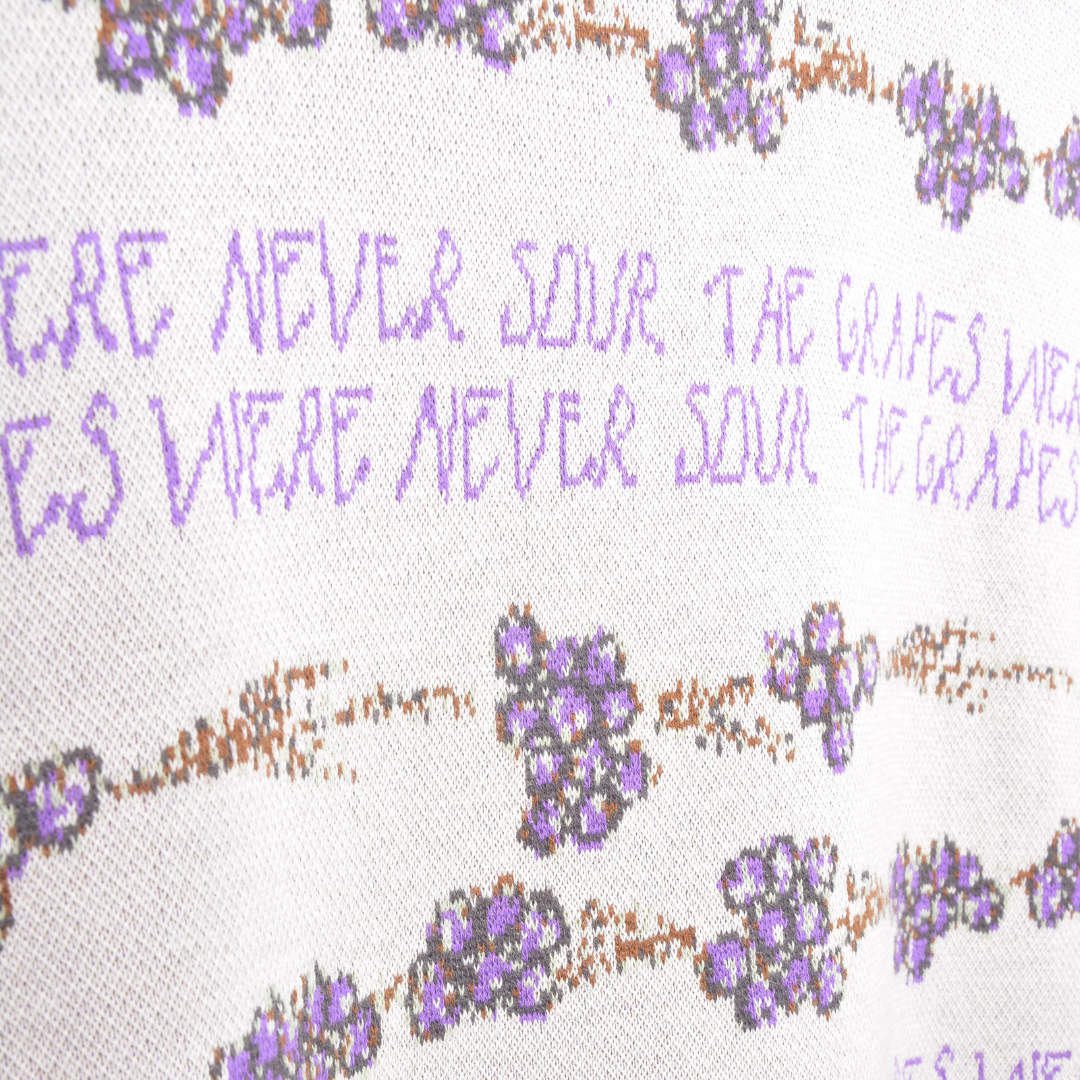 ERE NEVER SOUR. THE GRAPES WER
ES WERE NEVER SOUR THE GRAPES
ES WE